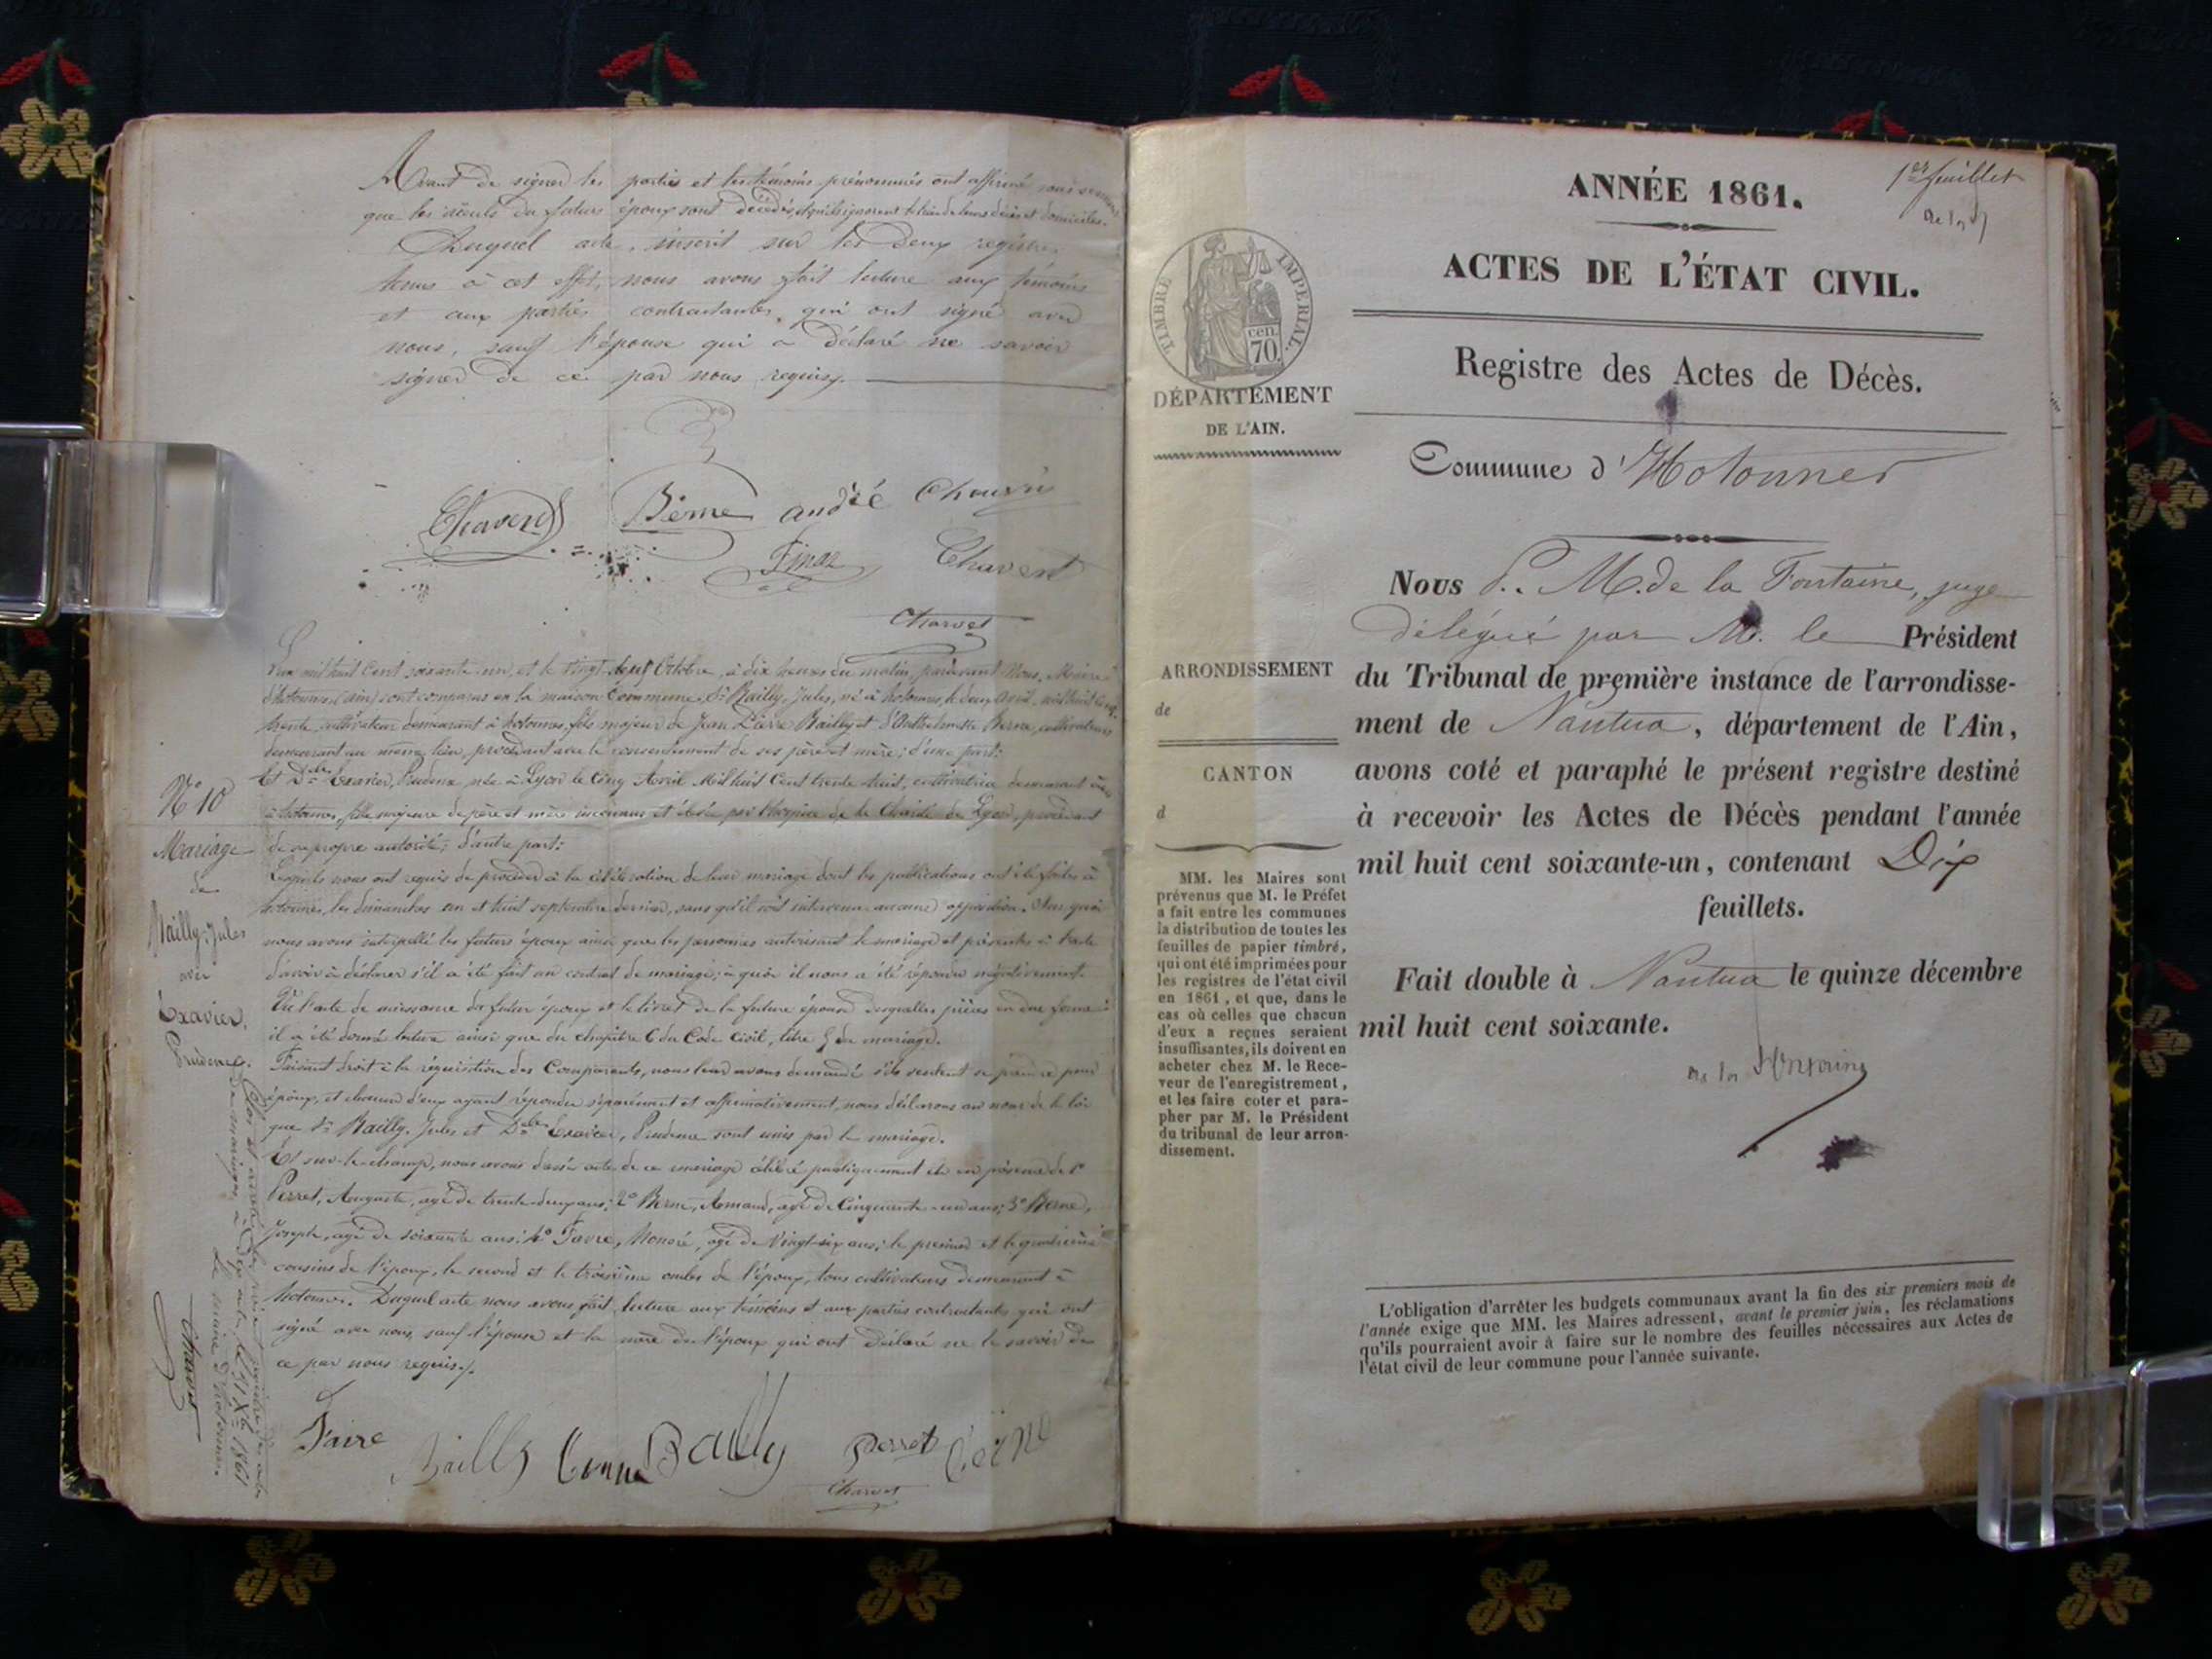 Avant de signer les parties et les témoins prénommés ont affirmé sous serment
que les aïeuls du futur époux sont décédés et qu'ils ignorent le lieu de leurs décès et domiciles.
Duquel acte, inscrit sur les deux registres
tenus à cet effet, nous avons fait lecture aux témoins
et aux parties contractantes, qui ont signé avec
nous, sauf l'épouse qui a déclaré ne savoir
signer de ce par nous requis.
Chavent Berne andré
Finaz Chavent
Charvet
L'an mil huit cent soixante un, et le vingt-sept Octobre, à dix heures du matin, pardevant Nous, Maire
d'hotonnes (ain) sont comparus en la maison Commune, Sr Bailly, Jules, né à hotonnes, le deux avril, mil huit cent
trente, cultivateur demeurant à hotonnes, fils majeur de Jean Pierre Bailly et d'Anthelmette Berne, cultivateurs
demeurant au même lieu, procédant avec le consentement de ses père et mère; d'une part:
Et Dlle Exavier, Prudence, née à Lyon le Cinq Avril Mil huit Cent trente huit, cultivatrice demeurant
à hotonnes, fille majeure de père et mère inconnus et élevée par l'hospice de la Charité de Lyon, procédant
de sa propre autorité; d'autre part:
Lesquels nous ont requis de procéder à la célébration de leur mariage dont les publications ont été faites à
hotonnes, les dimanches un et huit septembre dernier, sans qu'il soit intervenu aucune opposition. Sur quoi
nous avons interpellé les futurs époux ainsi que les personnes autorisant le mariage et présentes à l'acte
d'avoir à déclarer s'il a été fait un contrat de mariage; à quoi il nous a été répondu négativement.
Vu l'acte de naissance du futur époux et le livret de la future épouse desquelles pièces en due forme
il a été donné lecture ainsi que du chapitre 6 du Code Civil, titre 5 du mariage.
Faisant droit à la réquisition des Comparants, nous leur avons demandé s'ils veulent se prendre pour
époux, et chacun d'eux ayant répondu séparément et affirmativement, nous déclarons au nom de la loi
que Sr Bailly, Jules et Dlle Exavier, Prudence sont unis par le mariage.
Et sur-le-champ, nous avons dressé acte de ce mariage célébré publiquement et en présence de 1°
Perret, Auguste, agé de trente-deux ans; 2° Berne, Armand, agé de Cinquante-un ans; 3° Berne,
Joseph, agé de soixante ans; 4° Favre, Honoré, agé de vingt-six ans; le premier et le quatrième
cousins de l'époux, le second et le troisième oncles de l'époux, tous cultivateurs demeurant à
hotonnes. Duquel acte nous avons fait lecture aux témoins et aux parties contractantes qui ont
signé avec nous, sauf l'épouse et la mère de l'époux qui ont déclaré ne le savoir de
ce par nous requis.
Favre Bailly Berne Bailly Perret Berne
Charvet
N° 10
Mariage
de
Bailly Jules
avec
Exavier,
Prudence.
Clos et arrêté le présent registre des actes
de mariages à Dix actes le 31 Xbre 1861
Le maire d'hotonnes.
Charvet
1er feuillet
ANNÉE 1861.
ACTES DE L'ÉTAT CIVIL.
Registre des Actes de Décès.
Commune d'Hotonnes
TIMBRE IMPERIAL.
cen.
70.
DÉPARTEMENT
DE L'AIN.
ARRONDISSEMENT
de
CANTON
d
MM. les Maires sont
prévenus que M. le Préfet
a fait entre les communes
la distribution de toutes les
feuilles de papier timbré,
qui ont été imprimées pour
les registres de l'état civil
en 1861, et que, dans le
cas où celles que chacun
d'eux a reçues seraient
insuffisantes, ils doivent en
acheter chez M. le Rece-
veur de l'enregistrement,
et les faire coter et para-
pher par M. le Président
du tribunal de leur arron-
dissement.
Nous P. M. de la Fontaine, juge
délégué par M. le Président
du Tribunal de première instance de l'arrondisse-
ment de Nantua, département de l'Ain,
avons coté et paraphé le présent registre destiné
à recevoir les Actes de Décès pendant l'année
mil huit cent soixante-un, contenant Dix
feuillets.
Fait double à Nantua le quinze décembre
mil huit cent soixante.
de la Fontaine
L'obligation d'arrêter les budgets communaux avant la fin des six premiers mois de
l'année exige que MM. les Maires adressent, avant le premier juin, les réclamations
qu'ils pourraient avoir à faire sur le nombre des feuilles nécessaires aux Actes de
l'état civil de leur commune pour l'année suivante.